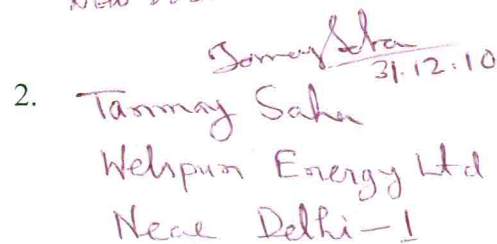 31.12.10
2. Tanmay Saha
Welspun Energy Ltd
New Delhi-1